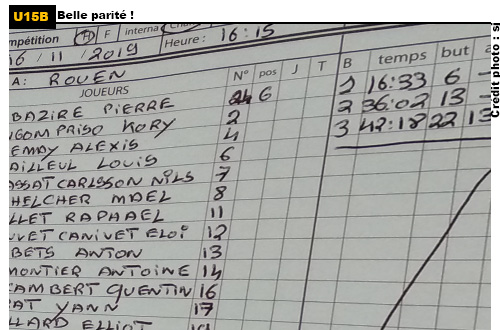 U15B Belle parité !
Crédit photo : si
mpétition H F interna
16 / 11 / 2019 Heure : 16:15
A: ROUEN
JOUEURS N° pos J T B temps but
BAZIRE PIERRE 24 G 1 16:33 6 -
NGOM PRISO KORY 2 2 36:02 13 -
EMAY ALEXIS 4 3 42:18 22 13
AILLEUL LOUIS 6
ASSAT CARLSSON NILS 7
HELCHER MAEL 8
LLET RAPHAEL 11
UVET CANIVET ELOI 12
BETS ANTON 13
MONTIER ANTOINE 14
AMBERT QUENTIN 16
AT YANN 17
LLARD ELLIOT